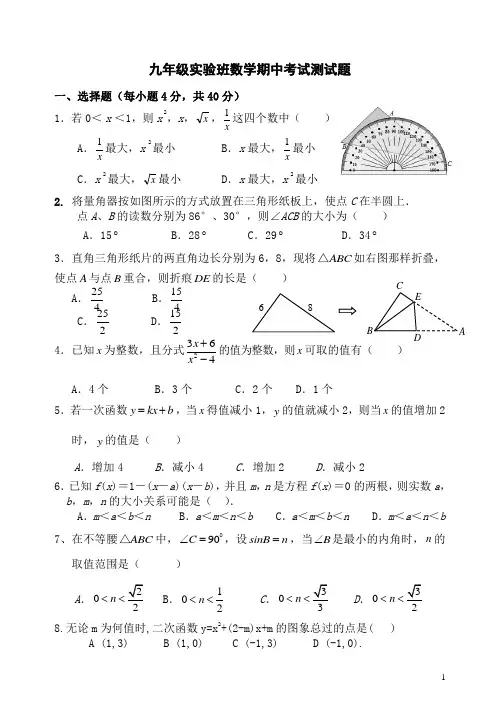 九年级实验班数学期中考试测试题
一、选择题（每小题4分，共40分）
1．若0＜x＜1，则x²，x，√x，1/x这四个数中（　　）
A．1/x最大，x²最小　　B．x最大，1/x最小
C．x²最大，√x最小　　D．x最大，x²最小
2. 将量角器按如图所示的方式放置在三角形纸板上，使点C在半圆上．
点A、B的读数分别为86°、30°，则∠ACB的大小为（　　）
A．15º　　B．28º　　C．29º　　D．34º
A
B
C
3．直角三角形纸片的两直角边长分别为6，8，现将△ABC如右图那样折叠，
使点A与点B重合，则折痕DE的长是（　　）
A．25/4　　B．15/4
C．25/2　　D．15/2
6　8　⇨　C　E　B　D　A
4．已知x为整数，且分式(3x+6)/(x²−4)的值为整数，则x可取的值有（　　）
A．4个　　B．3个　　C．2个　　D．1个
5．若一次函数y=kx+b，当x得值减小1，y的值就减小2，则当x的值增加2
时，y的值是（　　）
A．增加4　　B．减小4　　C．增加2　　D．减小2
6．已知f(x)＝1－(x－a)(x－b)，并且m，n是方程f(x)＝0的两根，则实数a，
b，m，n的大小关系可能是（　）．
A．m＜a＜b＜n　　B．a＜m＜n＜b　　C．a＜m＜b＜n　　D．m＜a＜n＜b
7、在不等腰△ABC中，∠C=90⁰，设sinB=n，当∠B是最小的内角时，n的
取值范围是（　　）
A．0<n<√2/2　　B．0<n<1/2　　C．0<n<√3/3　　D．0<n<√3/2
8.无论m为何值时,二次函数y=x²+(2-m)x+m的图象总过的点是(　　)
A (1,3)　　B (1,0)　　C (-1,3)　　D (-1,0).
1